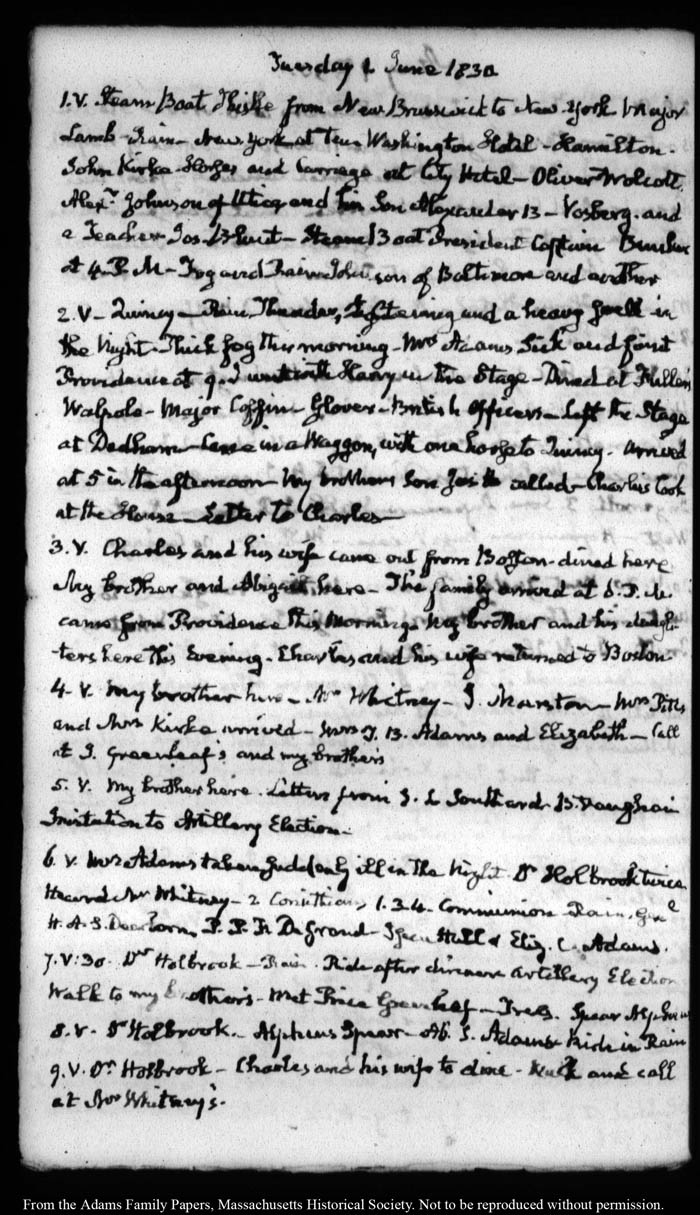 Tuesday 1 June 1830
1. V. Steam Boat Thistle from New Brunswick to New-York Major
Lamb - Rain - New York at ten Washington Hotel - Hamilton.
John Kirke - Horses and Carriage at City Hotel - Oliver Wolcott.
Alexr. Johnson of Utica and his Son Alexander B - Vosberg. and
a Teacher - Jos. Blunt - Steam Boat President Captain Bunker
at 4. P. M - Fog and Rain - Johnson of Baltimore and another
2. V - Quincy - Rain, Thunder, Lightening and a heavy swell in
the Night - Thick fog this morning - Mrs Adams Sick and faint
Providence at 9. I went with Harry in the Stage - Dined at Fuller's
Walpole - Major Coffin - Glover - British Officers - Left the Stage
at Dedham - Came in a Waggon, with one horse to Quincy - arrived
at 5 in the afternoon - My brothers Son called - Charles
at the House - Letter to Charles
3. V. Charles and his wife came out from Boston - dined here
My brother and Abigail here - The family arrived at P. M.
came from Providence this Morning - My brother and his daugh-
ters here this Evening - Charles and his wife returned to Boston
4. V. My brother here - Mr Whitney - J. Marston - Mrs
and Mrs Kirke arrived - Mrs T. B. Adams and Elizabeth - Call
at J. Greenleaf's and my brothers
5. V. My brother here. Letters from S. L Southard. B. Vaughan
Invitation to Artillery Election -
6. V. Mrs Adams taken suddenly ill in the Night. Dr Holbrook twice
Heard Mr Whitney - 2 Corinthians 1. 3. 4. Communion - Rain. Genl
H. A. S. Dearborn, P. P. F. Degrand - Hull & Eliz. C. Adams.
7. V:30. Dr Holbrook - Rain. Ride after dinner Artillery Election
Walk to my brother's - Met Price Greenleaf - Trees. Spear Alpheus
8. V. Dr Holbrook. - Alpheus Spear - Ab. S. Adams Ride in Rain
9. V. Dr Holbrook - Charles and his wife to dine - Walk and call
at Mr Whitney's.
From the Adams Family Papers, Massachusetts Historical Society. Not to be reproduced without permission.